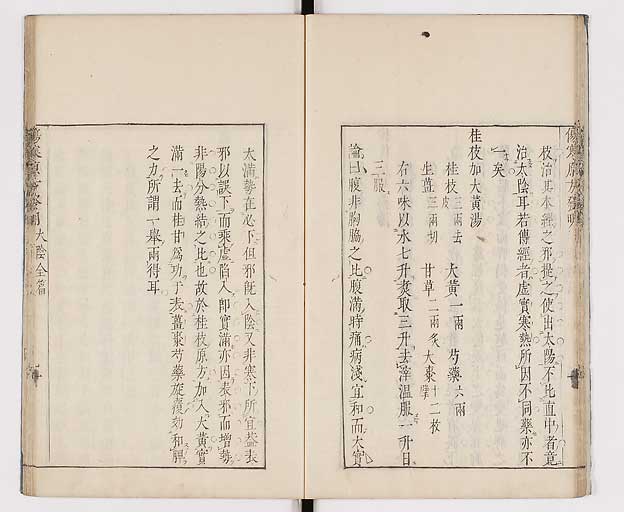 枝治其本經之邪提之使出太陽不比直中者竟
治太陰耳若傳經者虛實寒熱所因不同藥亦不
一矣
桂枝加大黃湯
桂枝三兩去皮 大黃一兩 芍藥六兩
生薑三兩切 甘草二兩炙 大棗十二枚擘
右六味以水七升煑取三升去滓溫服一升日
三服
論曰腹非胸脇之比腹滿時痛病淺宜和而大實
大滿勢在必下但邪旣入陰又非寒下所宜葢表
邪以誤下而乘虛陷入卽實滿亦因表邪而增勢
非陽分熱結之比也故於桂枝原方加入大黃實
滿一去而桂甘爲功于表薑棗芍藥旋復効和脾
之力所謂一舉兩得耳
太陰全篇